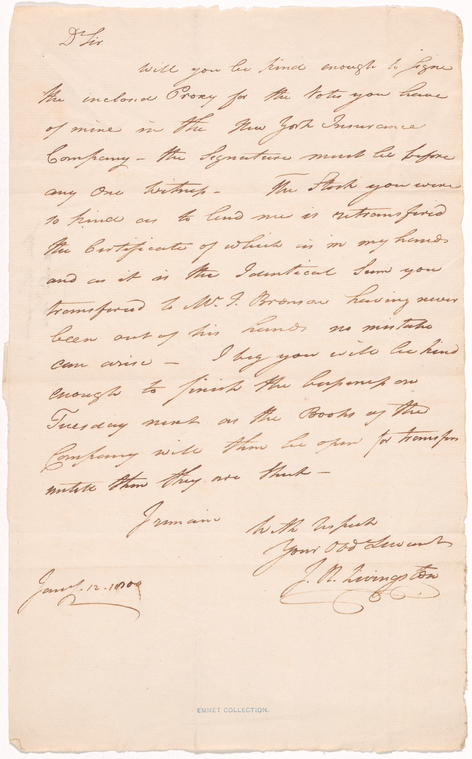 Dr Sir
Will you be kind enough to signe
the inclosed Proxy for the Vote you have
of mine in the New York Insurance
Company – the Signature must be before
any one Witness – The Stock you were
so kind as to lend me is retransfered
the Certificate of which is in my hands
and as it is the Identical Sum you
transfered to Mr. I. Bronson having never
been out of his hands no mistake
can arise – I beg you will be kind
enough to finish the business on
Tuesday next as the Books of the
Company will then be open for transfers
untill then they are shut –
I remain
with respect
Your Obdt Servant
J. R. Livingston
Jany. 12. 1800
EMMET COLLECTION.